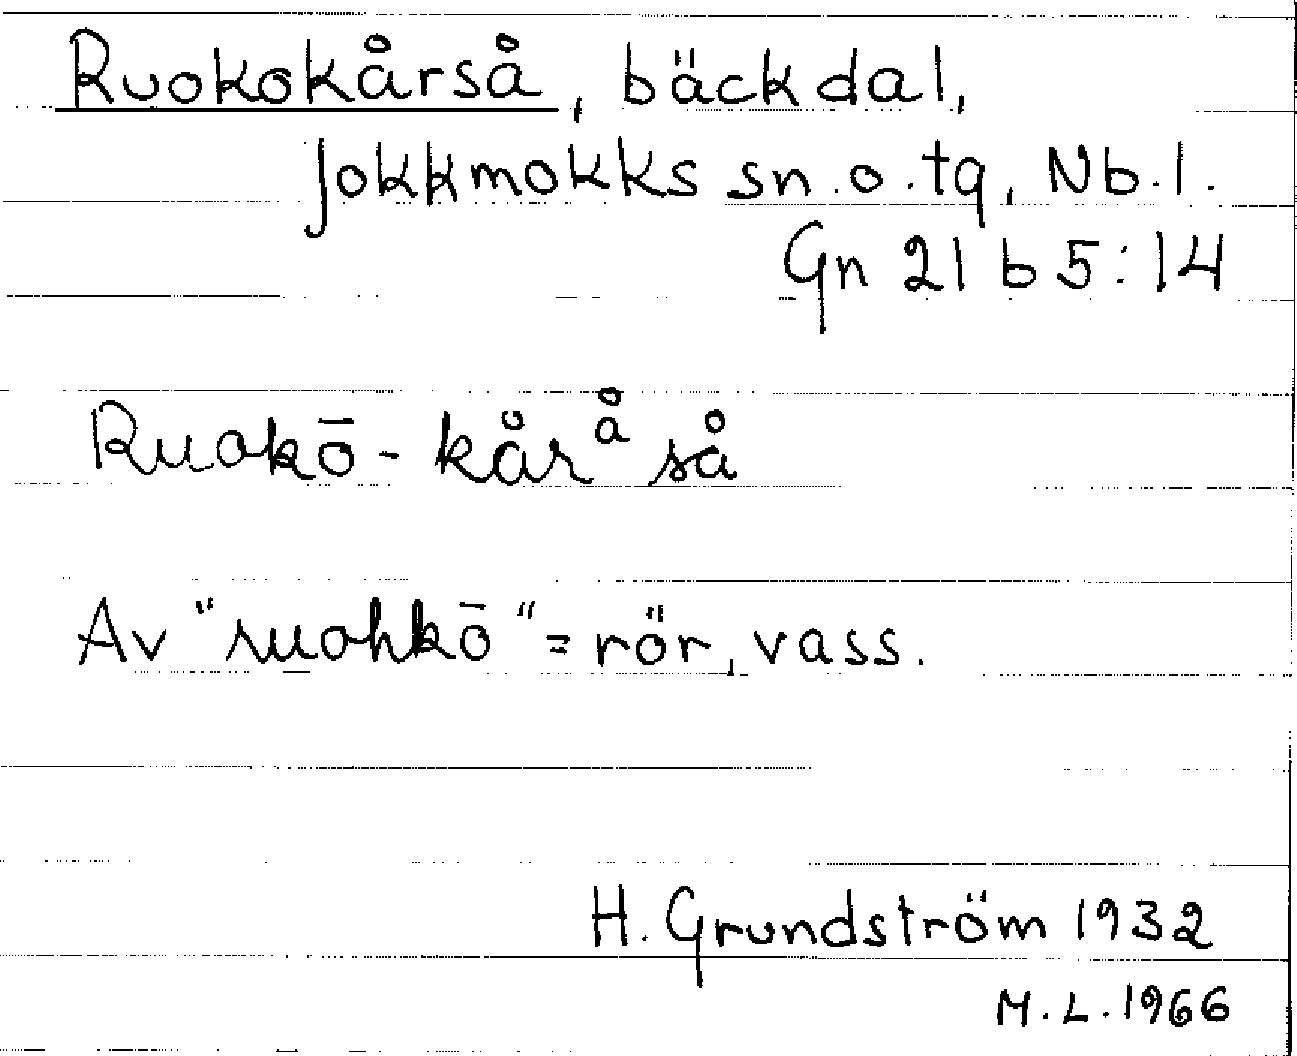 Ruokokårså, bäckdal,
Jokkmokks sn. o. tg, Nb. l.
Gn 21 b 5:14
Ruokō-kåråså
Av "ruohkō" = rör, vass.
H. Grundström 1932
M. L. 1966